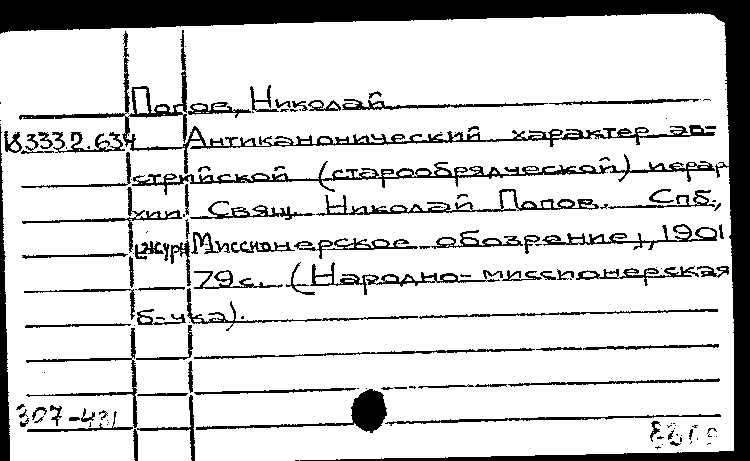 Попов, Николай
18.333.2.634 Антиканонический характер ав=
стрийской (старообрядческой) иерар
хии Свящ. Николай Попов. Спб.,
[журн Миссионерское обозрение], 1901.
79 с. (Народно-миссионерская
б-чка).
307-431